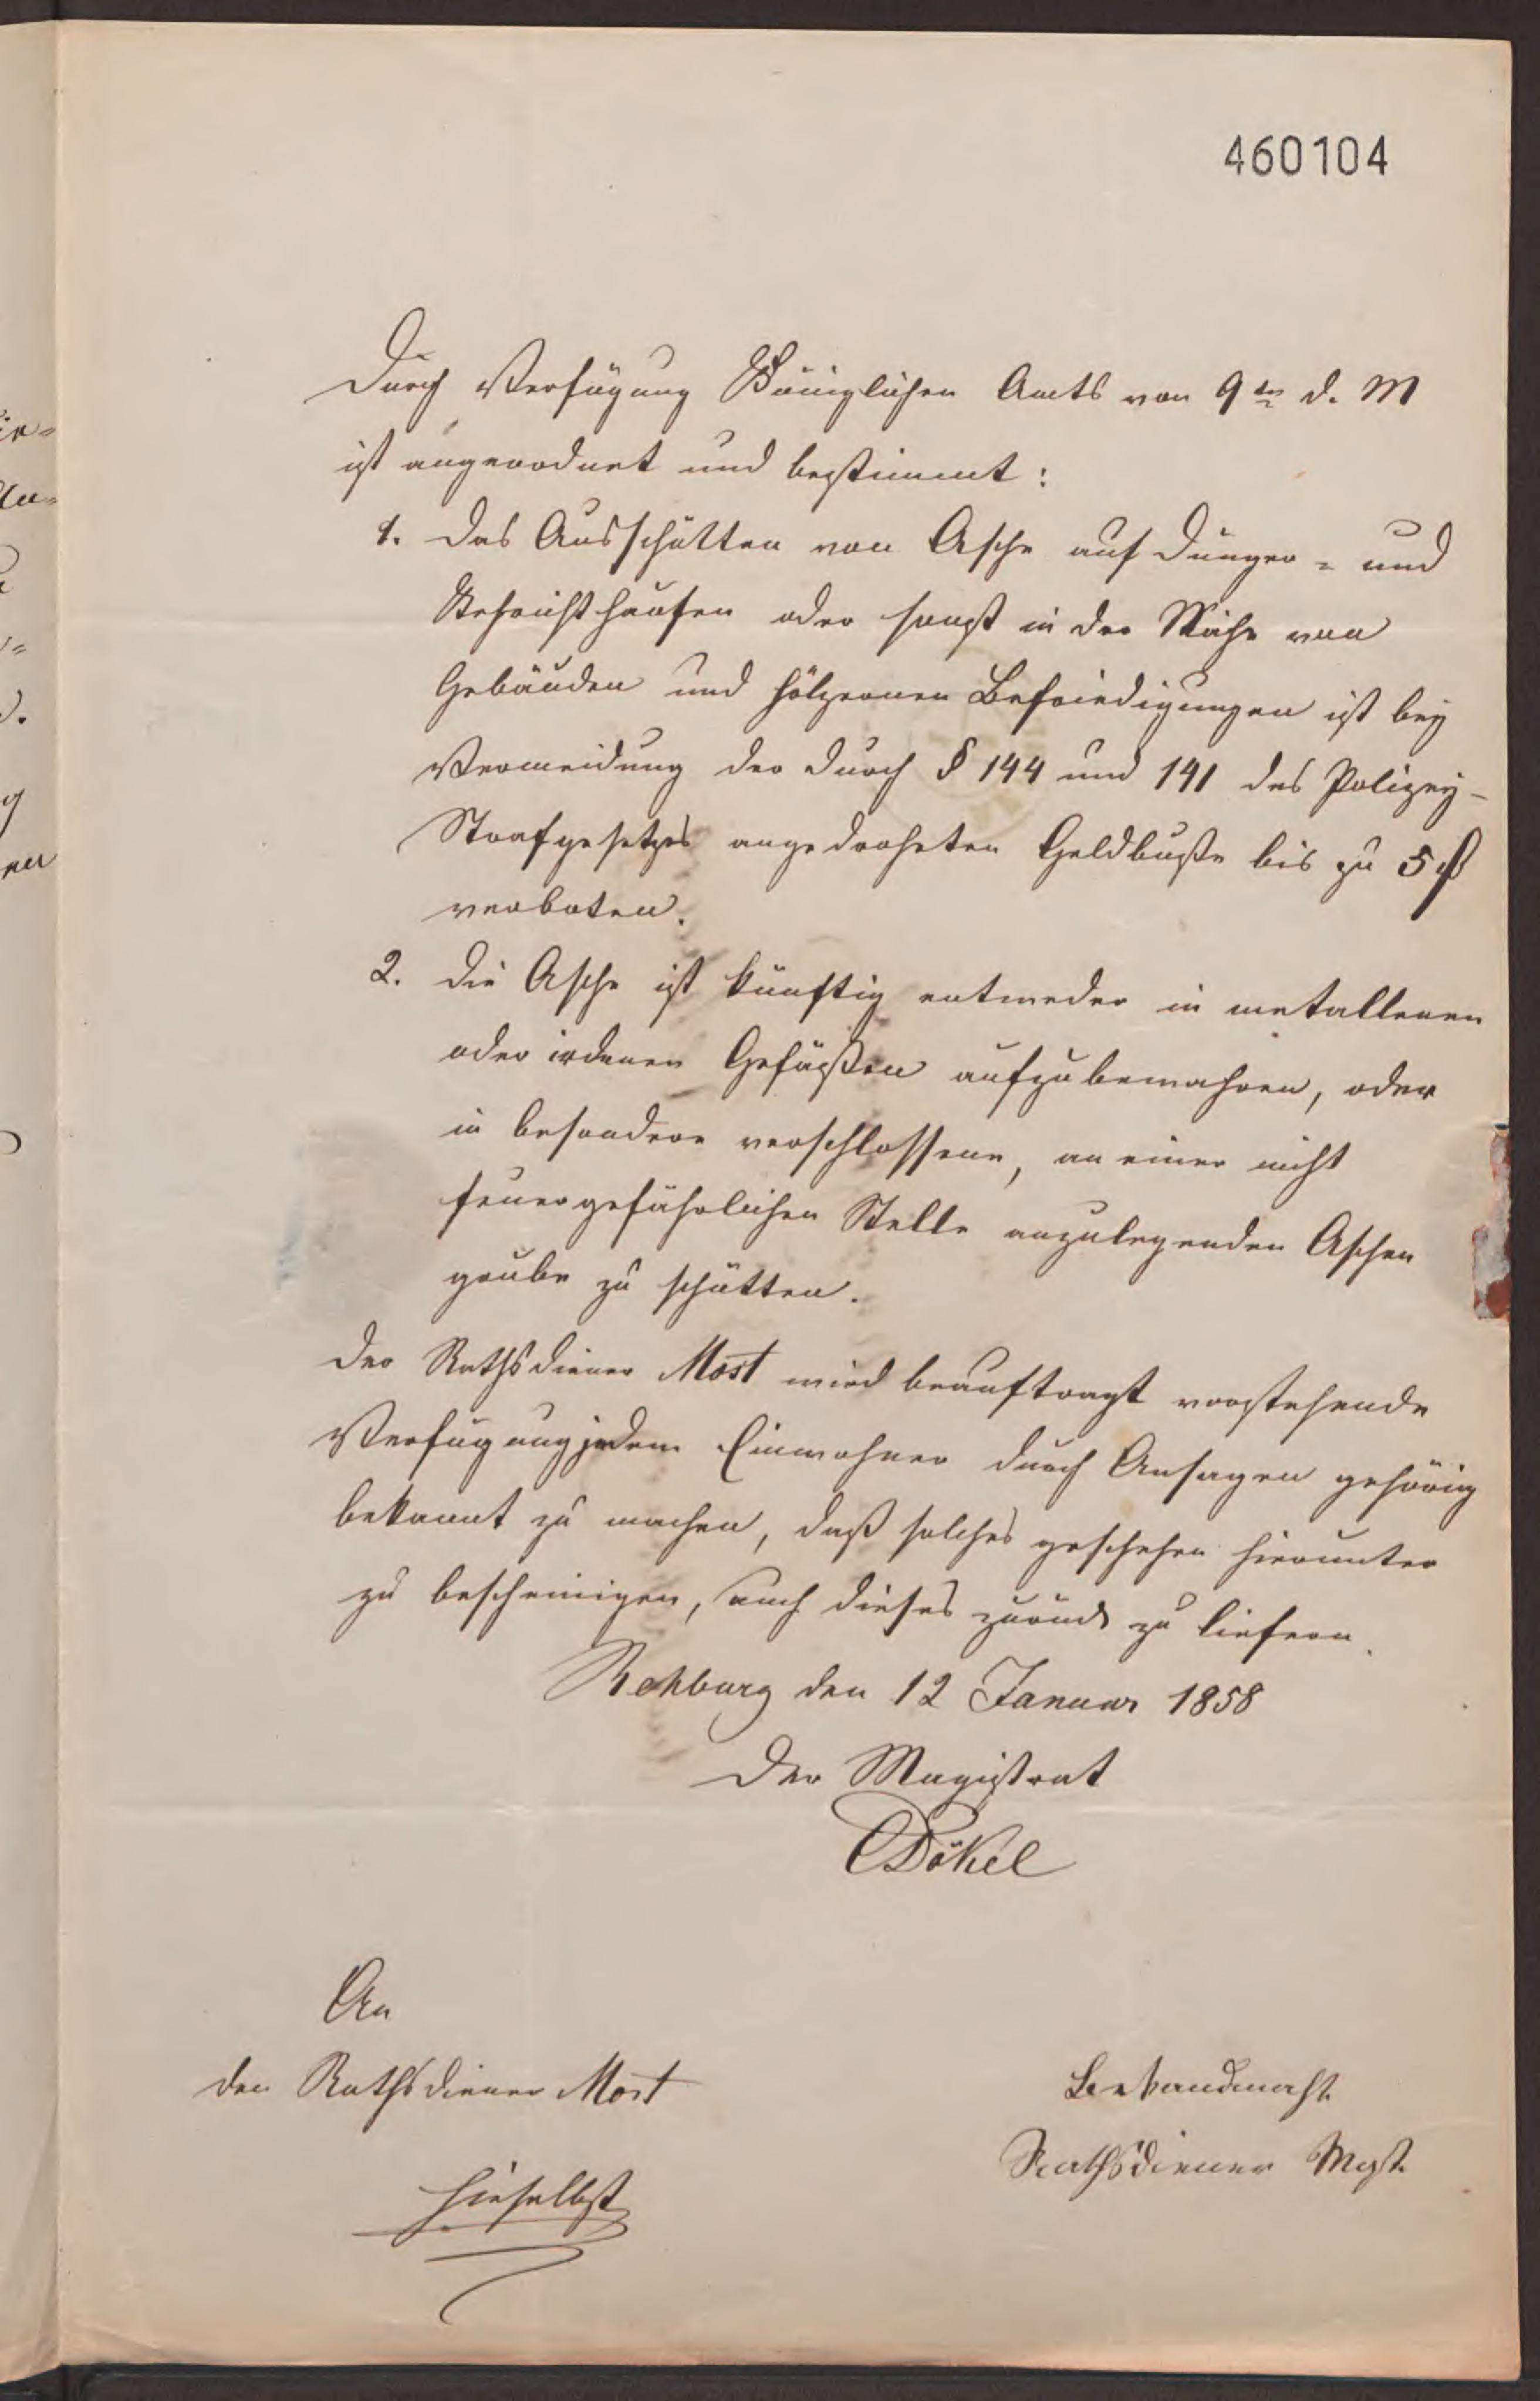 460104
Durch Verfügung Königlichen Amts von 9ten d. M
ist angeordnet und bestimmt:
1. das Ausschütten von Asche auf Dünger- und
Kehrichthaufen oder sonst in der Nähe von
Gebäuden und hölzernen Befriedigungen ist bey
Vermeidung der durch § 144 und 141 des Polizey-
Strafgesetzes angedroheten Geldbuße bis zu 5 
verboten.
2. die Asche ist künftig entweder in metallenen
oder irdenen Gefäßen aufzubewahren, oder
in besondere verschlossene, an einer nicht
feuergefährlichen Stelle anzulegenden Aschen
grube zu schütten.
der Rathsdiener Most wird beauftragt vorstehende
Verfügung jedem Einwohner durch Ansagen gehörig
bekannt zu machen, daß solches geschehen hierunter
zu bescheinigen, auch dieses zurück zu liefern.
Rehburg den 12 Januar 1858
Der Magistrat
Dökel
An
den Rathsdiener Most
hieselbst
Bekandmacht
Rathsdiener Most.